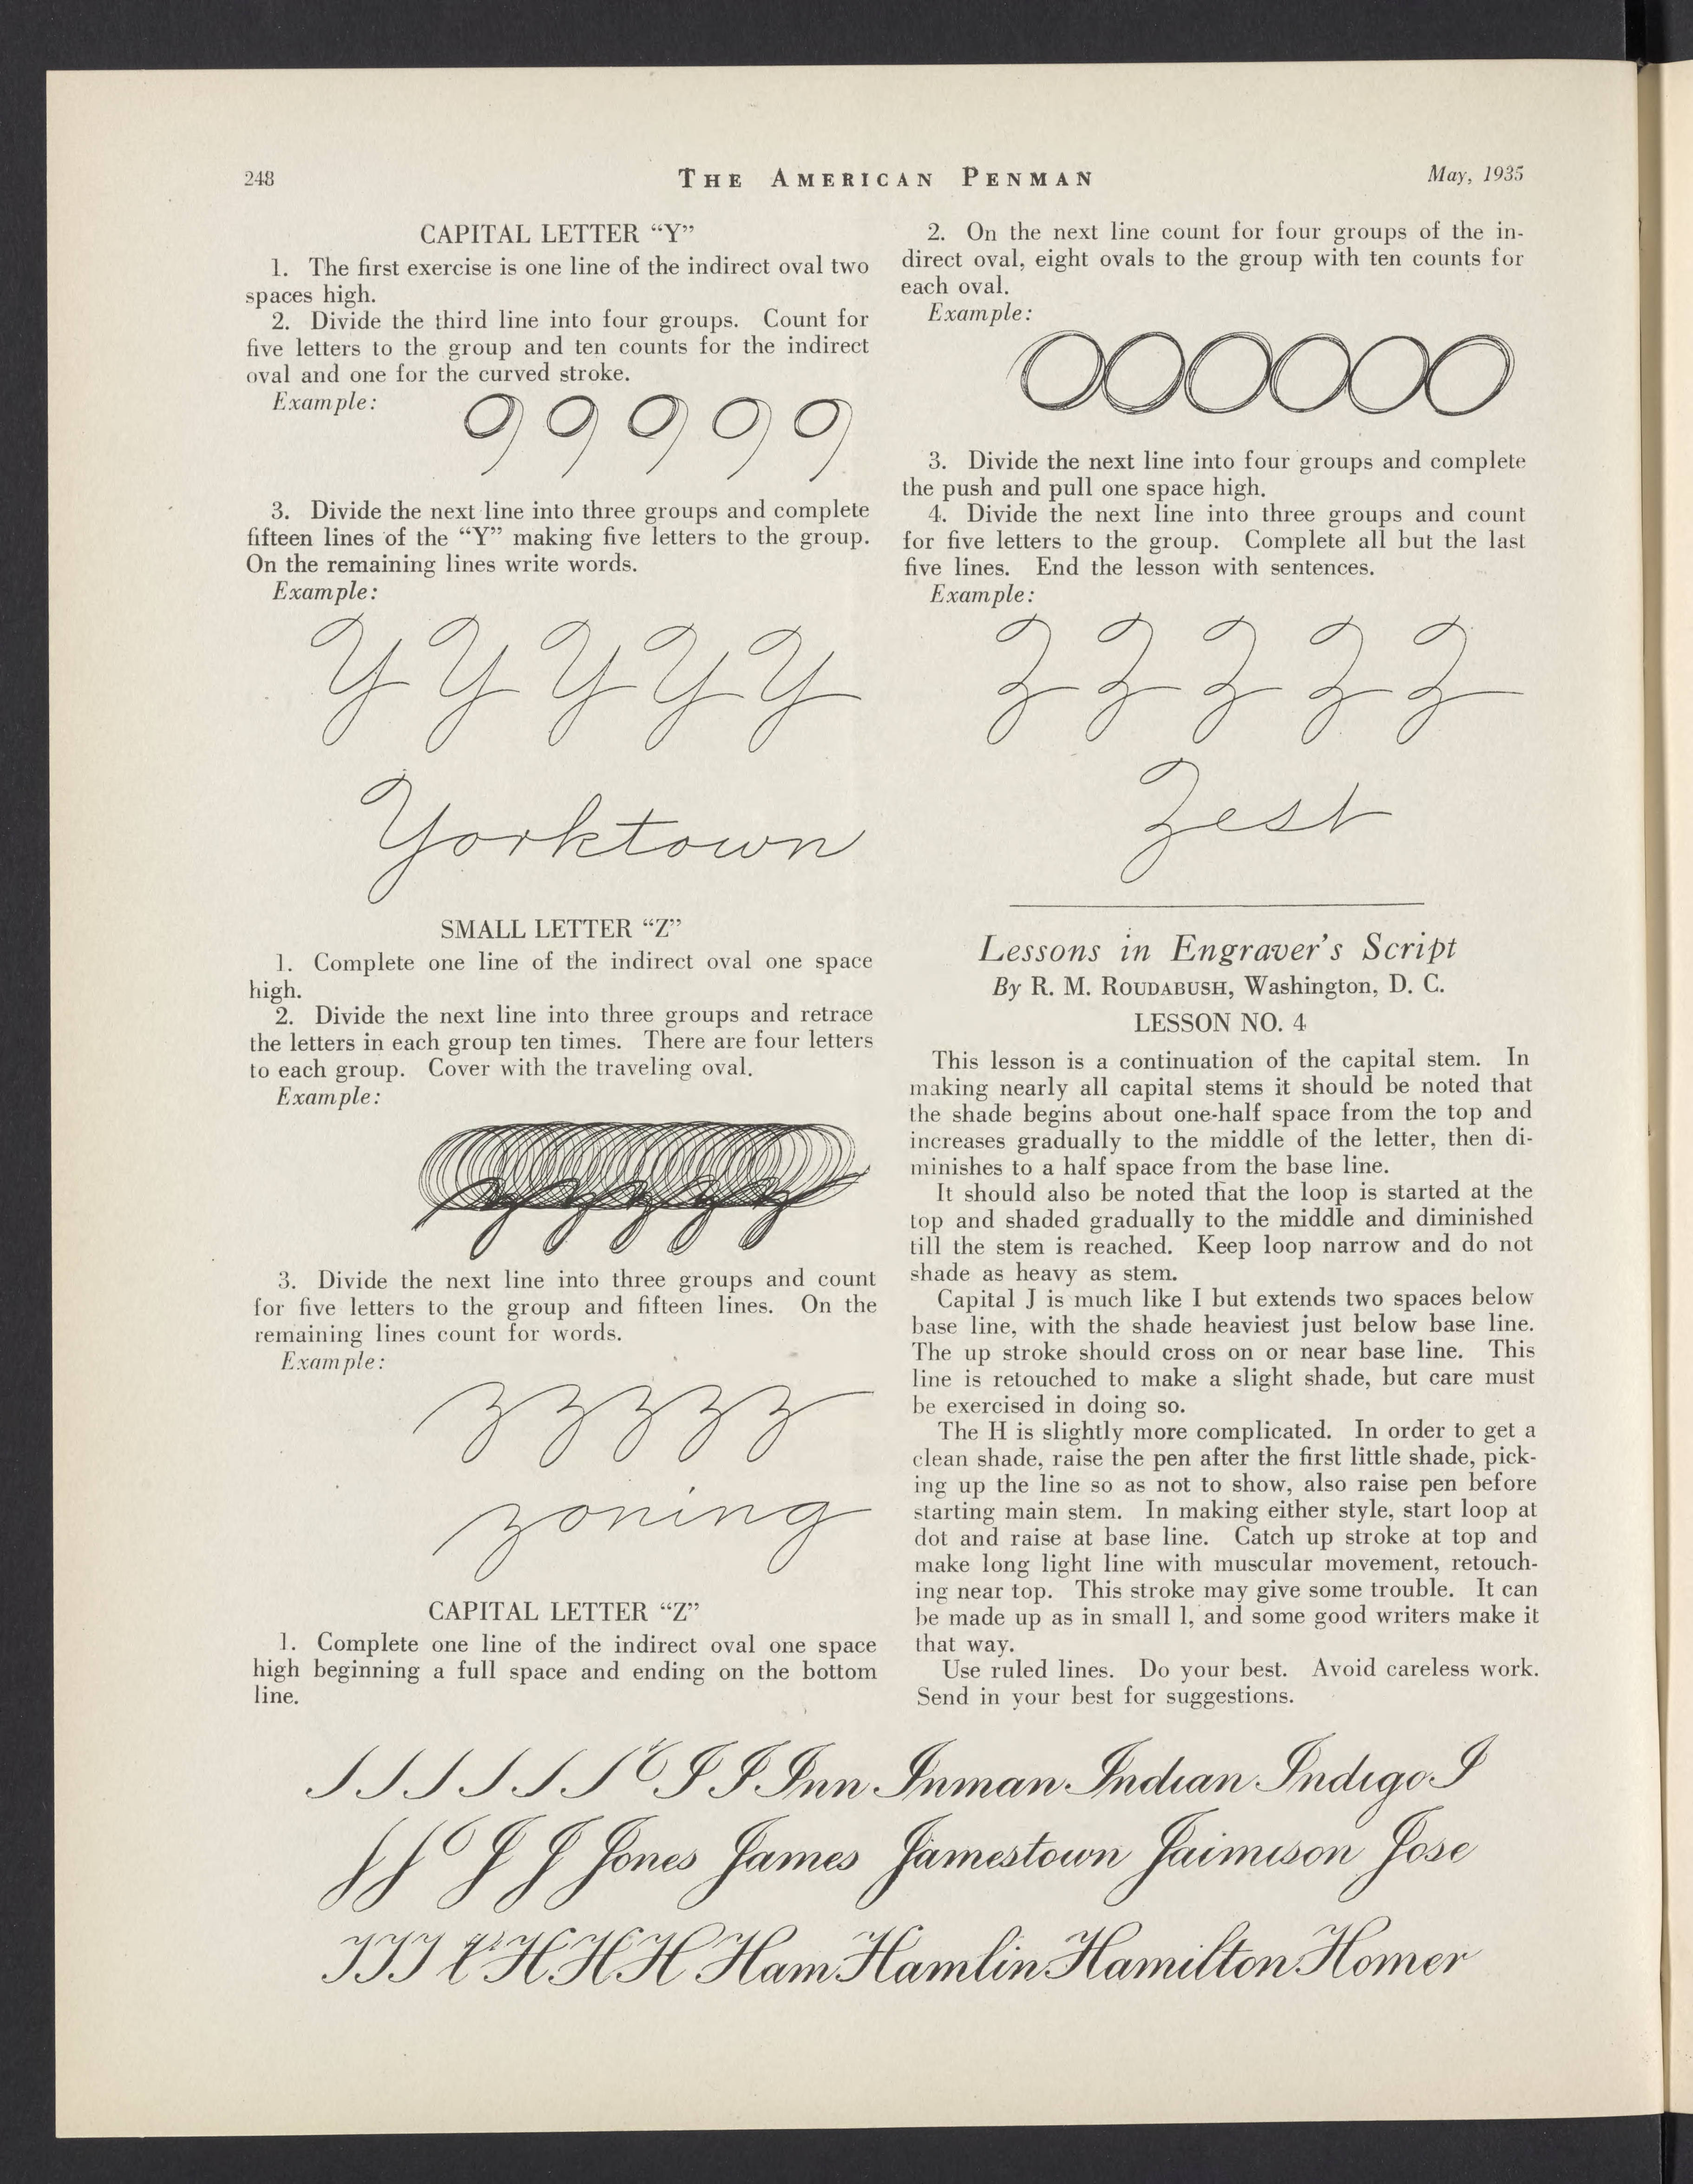 248
THE AMERICAN PENMAN
May, 1935
CAPITAL LETTER “Y”
1. The first exercise is one line of the indirect oval two
spaces high.
2. Divide the third line into four groups. Count for
five letters to the group and ten counts for the indirect
oval and one for the curved stroke.
Example:
3. Divide the next line into three groups and complete
fifteen lines of the “Y” making five letters to the group.
On the remaining lines write words.
Example:
Y Y Y Y Y
Yorktown
SMALL LETTER “Z”
1. Complete one line of the indirect oval one space
high.
2. Divide the next line into three groups and retrace
the letters in each group ten times. There are four letters
to each group. Cover with the traveling oval.
Example:
3. Divide the next line into three groups and count
for five letters to the group and fifteen lines. On the
remaining lines count for words.
Example:
zzzzz
zoning
CAPITAL LETTER “Z”
1. Complete one line of the indirect oval one space
high beginning a full space and ending on the bottom
line.
2. On the next line count for four groups of the in-
direct oval, eight ovals to the group with ten counts for
each oval.
Example:
3. Divide the next line into four groups and complete
the push and pull one space high.
4. Divide the next line into three groups and count
for five letters to the group. Complete all but the last
five lines. End the lesson with sentences.
Example:
Z Z Z Z Z
Zest
Lessons in Engraver's Script
By R. M. ROUDABUSH, Washington, D. C.
LESSON NO. 4
This lesson is a continuation of the capital stem. In
making nearly all capital stems it should be noted that
the shade begins about one-half space from the top and
increases gradually to the middle of the letter, then di-
minishes to a half space from the base line.
It should also be noted that the loop is started at the
top and shaded gradually to the middle and diminished
till the stem is reached. Keep loop narrow and do not
shade as heavy as stem.
Capital J is much like I but extends two spaces below
base line, with the shade heaviest just below base line.
The up stroke should cross on or near base line. This
line is retouched to make a slight shade, but care must
be exercised in doing so.
The H is slightly more complicated. In order to get a
clean shade, raise the pen after the first little shade, pick-
ing up the line so as not to show, also raise pen before
starting main stem. In making either style, start loop at
dot and raise at base line. Catch up stroke at top and
make long light line with muscular movement, retouch-
ing near top. This stroke may give some trouble. It can
be made up as in small l, and some good writers make it
that way.
Use ruled lines. Do your best. Avoid careless work.
Send in your best for suggestions.
I I Inn Inman Indian Indigo I
J J Jones James Jamestown Jaimison Jose
H H H Ham Hamlin Hamilton Homer